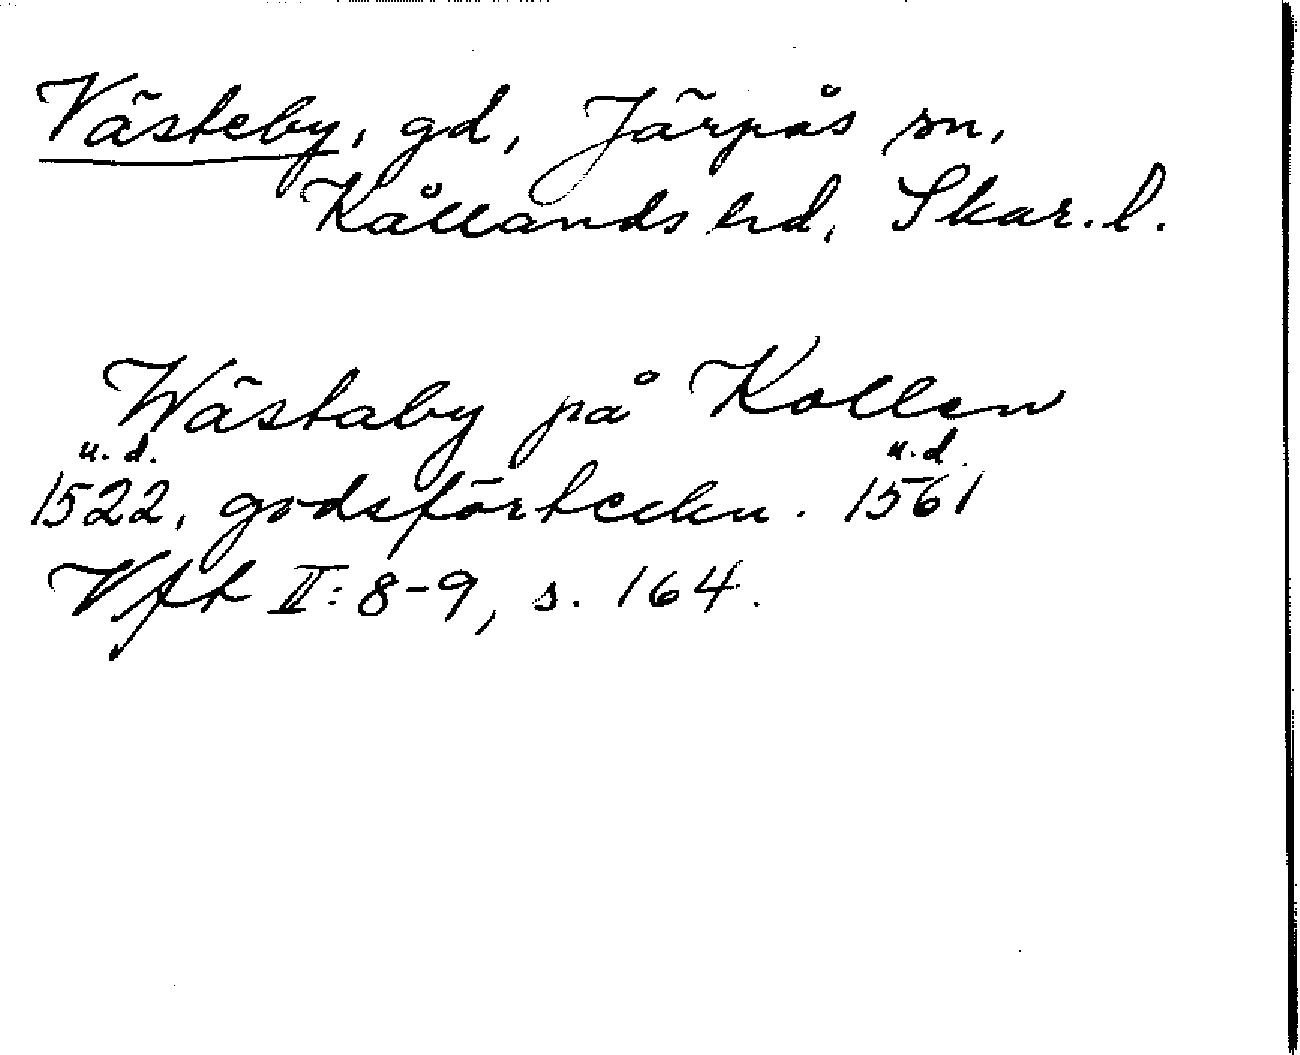 Västeby, gd, Järpås sn,
Kållands hd, Skar. l.
Wästaby på Kollen
u. d. u. d.
1522, godsförteckn. 1561
Vft II: 8-9, s. 164.